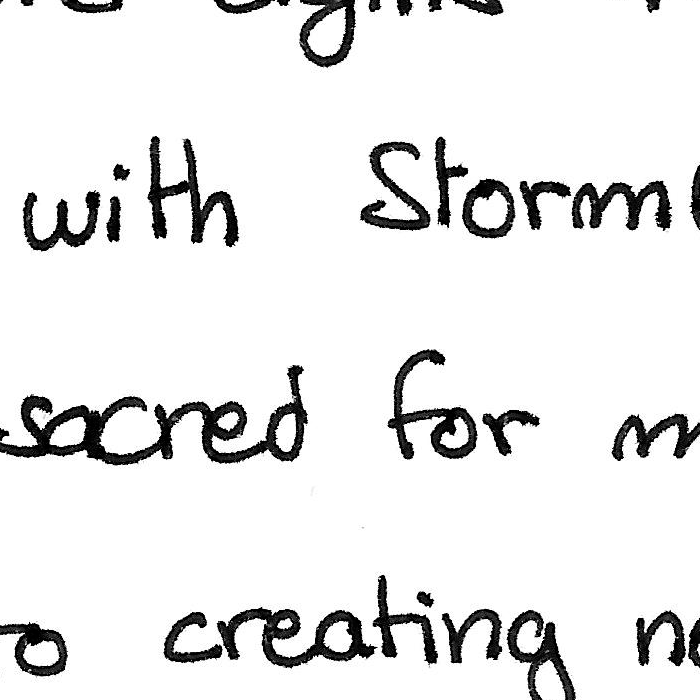 with Storm
sacred for m
to creating